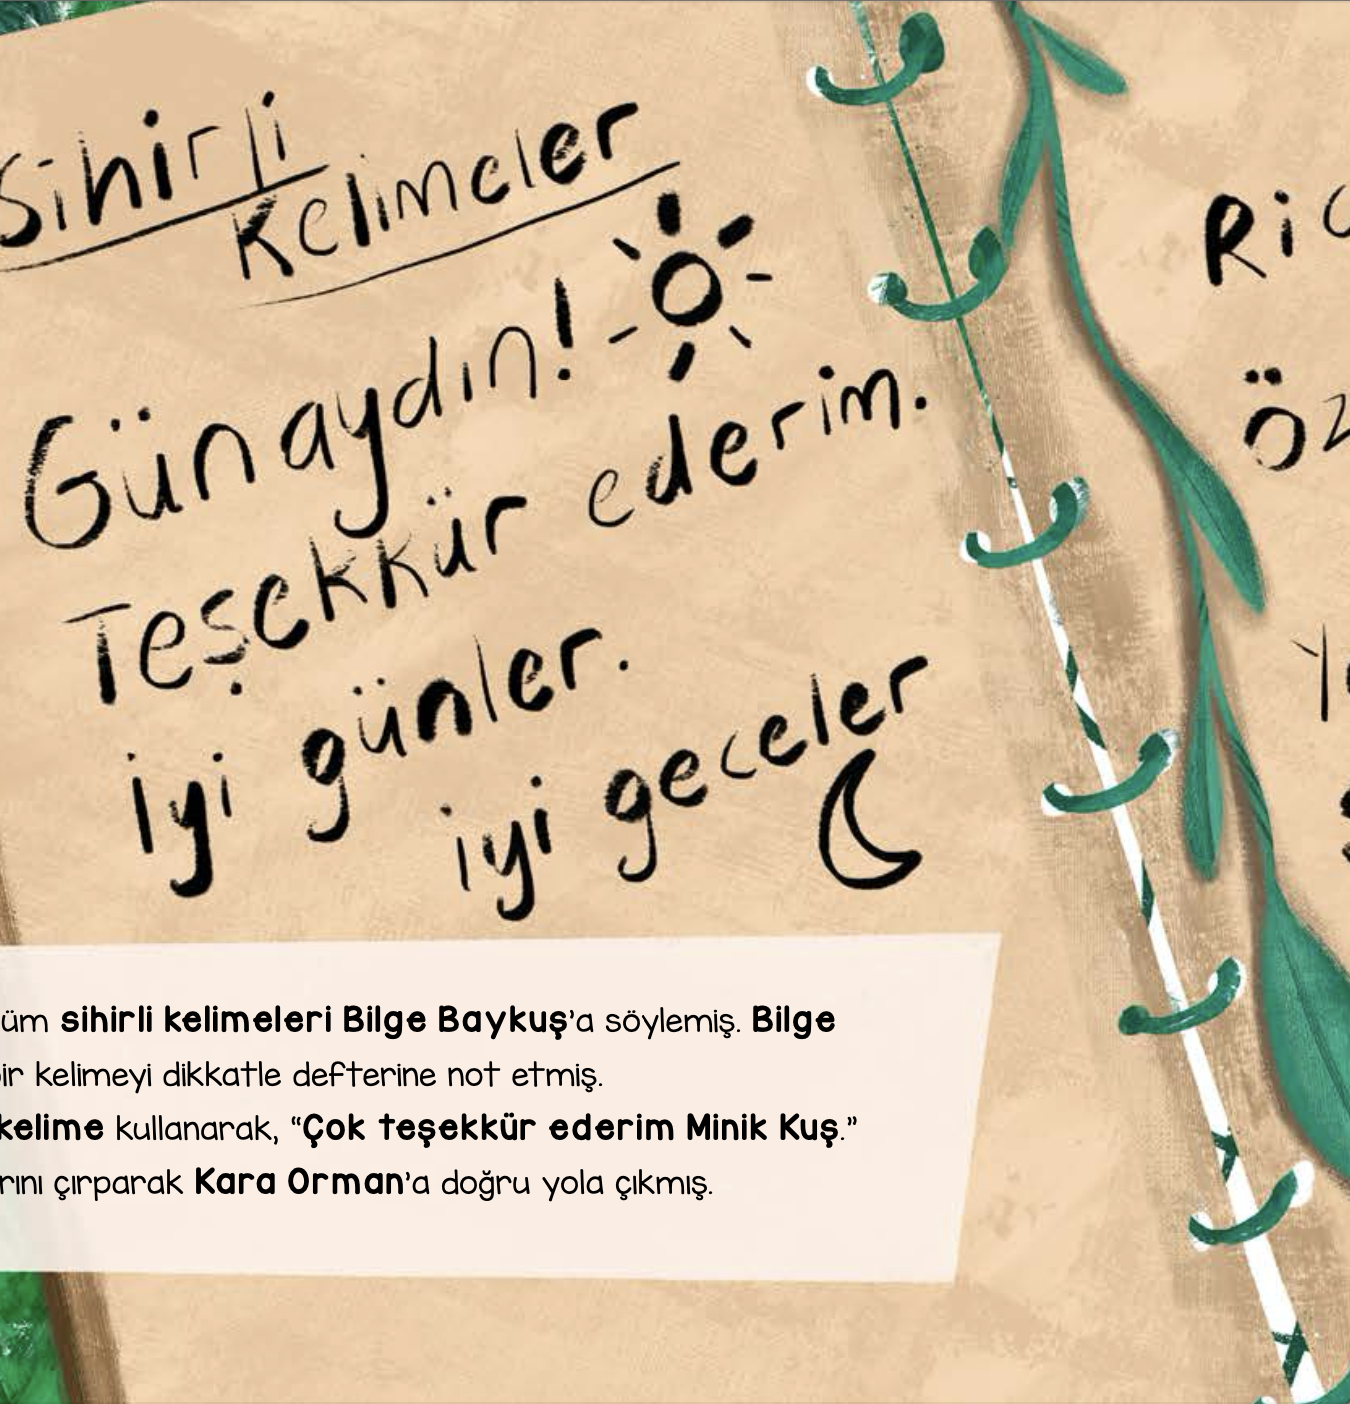 Sihirli
Kelimeler
Günaydın!
Teşekkür ederim.
iyi günler.
iyi geceler
sihirli kelimeleri Bilge Baykuş'a söylemiş. Bilge
kelimeyi dikkatle defterine not etmiş.
kelime kullanarak, “Çok teşekkür ederim Minik Kuş.”
çırparak Kara Orman'a doğru yola çıkmış.